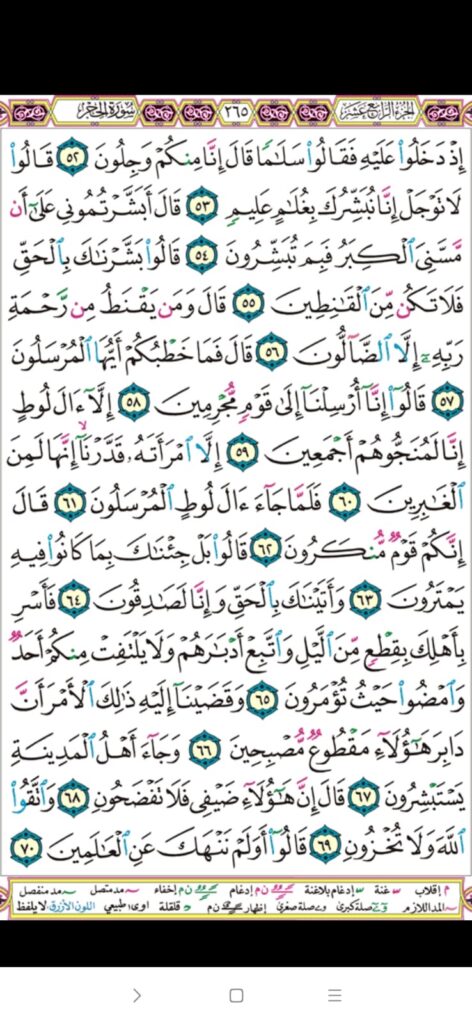 الجزء الرابع عشر ٢٦٥ سورة الحجر
إِذْ دَخَلُوا۟ عَلَيْهِ فَقَالُوا۟ سَلَـٰمًا قَالَ إِنَّا مِنكُمْ وَجِلُونَ ٥٢ قَالُوا۟
لَا تَوْجَلْ إِنَّا نُبَشِّرُكَ بِغُلَـٰمٍ عَلِيمٍ ٥٣ قَالَ أَبَشَّرْتُمُونِى عَلَىٰٓ أَن
مَّسَّنِىَ ٱلْكِبَرُ فَبِمَ تُبَشِّرُونَ ٥٤ قَالُوا۟ بَشَّرْنَـٰكَ بِٱلْحَقِّ
فَلَا تَكُن مِّنَ ٱلْقَـٰنِطِينَ ٥٥ قَالَ وَمَن يَقْنَطُ مِن رَّحْمَةِ
رَبِّهِۦٓ إِلَّا ٱلضَّآلُّونَ ٥٦ قَالَ فَمَا خَطْبُكُمْ أَيُّهَا ٱلْمُرْسَلُونَ
٥٧ قَالُوٓا۟ إِنَّآ أُرْسِلْنَآ إِلَىٰ قَوْمٍ مُّجْرِمِينَ ٥٨ إِلَّآ ءَالَ لُوطٍ
إِنَّا لَمُنَجُّوهُمْ أَجْمَعِينَ ٥٩ إِلَّا ٱمْرَأَتَهُۥ قَدَّرْنَآ إِنَّهَا لَمِنَ
ٱلْغَـٰبِرِينَ ٦٠ فَلَمَّا جَآءَ ءَالَ لُوطٍ ٱلْمُرْسَلُونَ ٦١ قَالَ
إِنَّكُمْ قَوْمٌ مُّنكَرُونَ ٦٢ قَالُوا۟ بَلْ جِئْنَـٰكَ بِمَا كَانُوا۟ فِيهِ
يَمْتَرُونَ ٦٣ وَأَتَيْنَـٰكَ بِٱلْحَقِّ وَإِنَّا لَصَـٰدِقُونَ ٦٤ فَأَسْرِ
بِأَهْلِكَ بِقِطْعٍ مِّنَ ٱلَّيْلِ وَٱتَّبِعْ أَدْبَـٰرَهُمْ وَلَا يَلْتَفِتْ مِنكُمْ أَحَدٌ
وَٱمْضُوا۟ حَيْثُ تُؤْمَرُونَ ٦٥ وَقَضَيْنَآ إِلَيْهِ ذَٰلِكَ ٱلْأَمْرَ أَنَّ
دَابِرَ هَـٰٓؤُلَآءِ مَقْطُوعٌ مُّصْبِحِينَ ٦٦ وَجَآءَ أَهْلُ ٱلْمَدِينَةِ
يَسْتَبْشِرُونَ ٦٧ قَالَ إِنَّ هَـٰٓؤُلَآءِ ضَيْفِى فَلَا تَفْضَحُونِ ٦٨ وَٱتَّقُوا۟
ٱللَّهَ وَلَا تُخْزُونِ ٦٩ قَالُوٓا۟ أَوَلَمْ نَنْهَكَ عَنِ ٱلْعَـٰلَمِينَ ٧٠
م إقلاب غنة إدغام بلاغنة ن م إدغام ن م إخفاء مد متصل مد منفصل
المد اللازم صلة كبرى صلة صغرى إظهار ن م قلقلة اوى طبيعي اللون الأزرق لا يلفظ